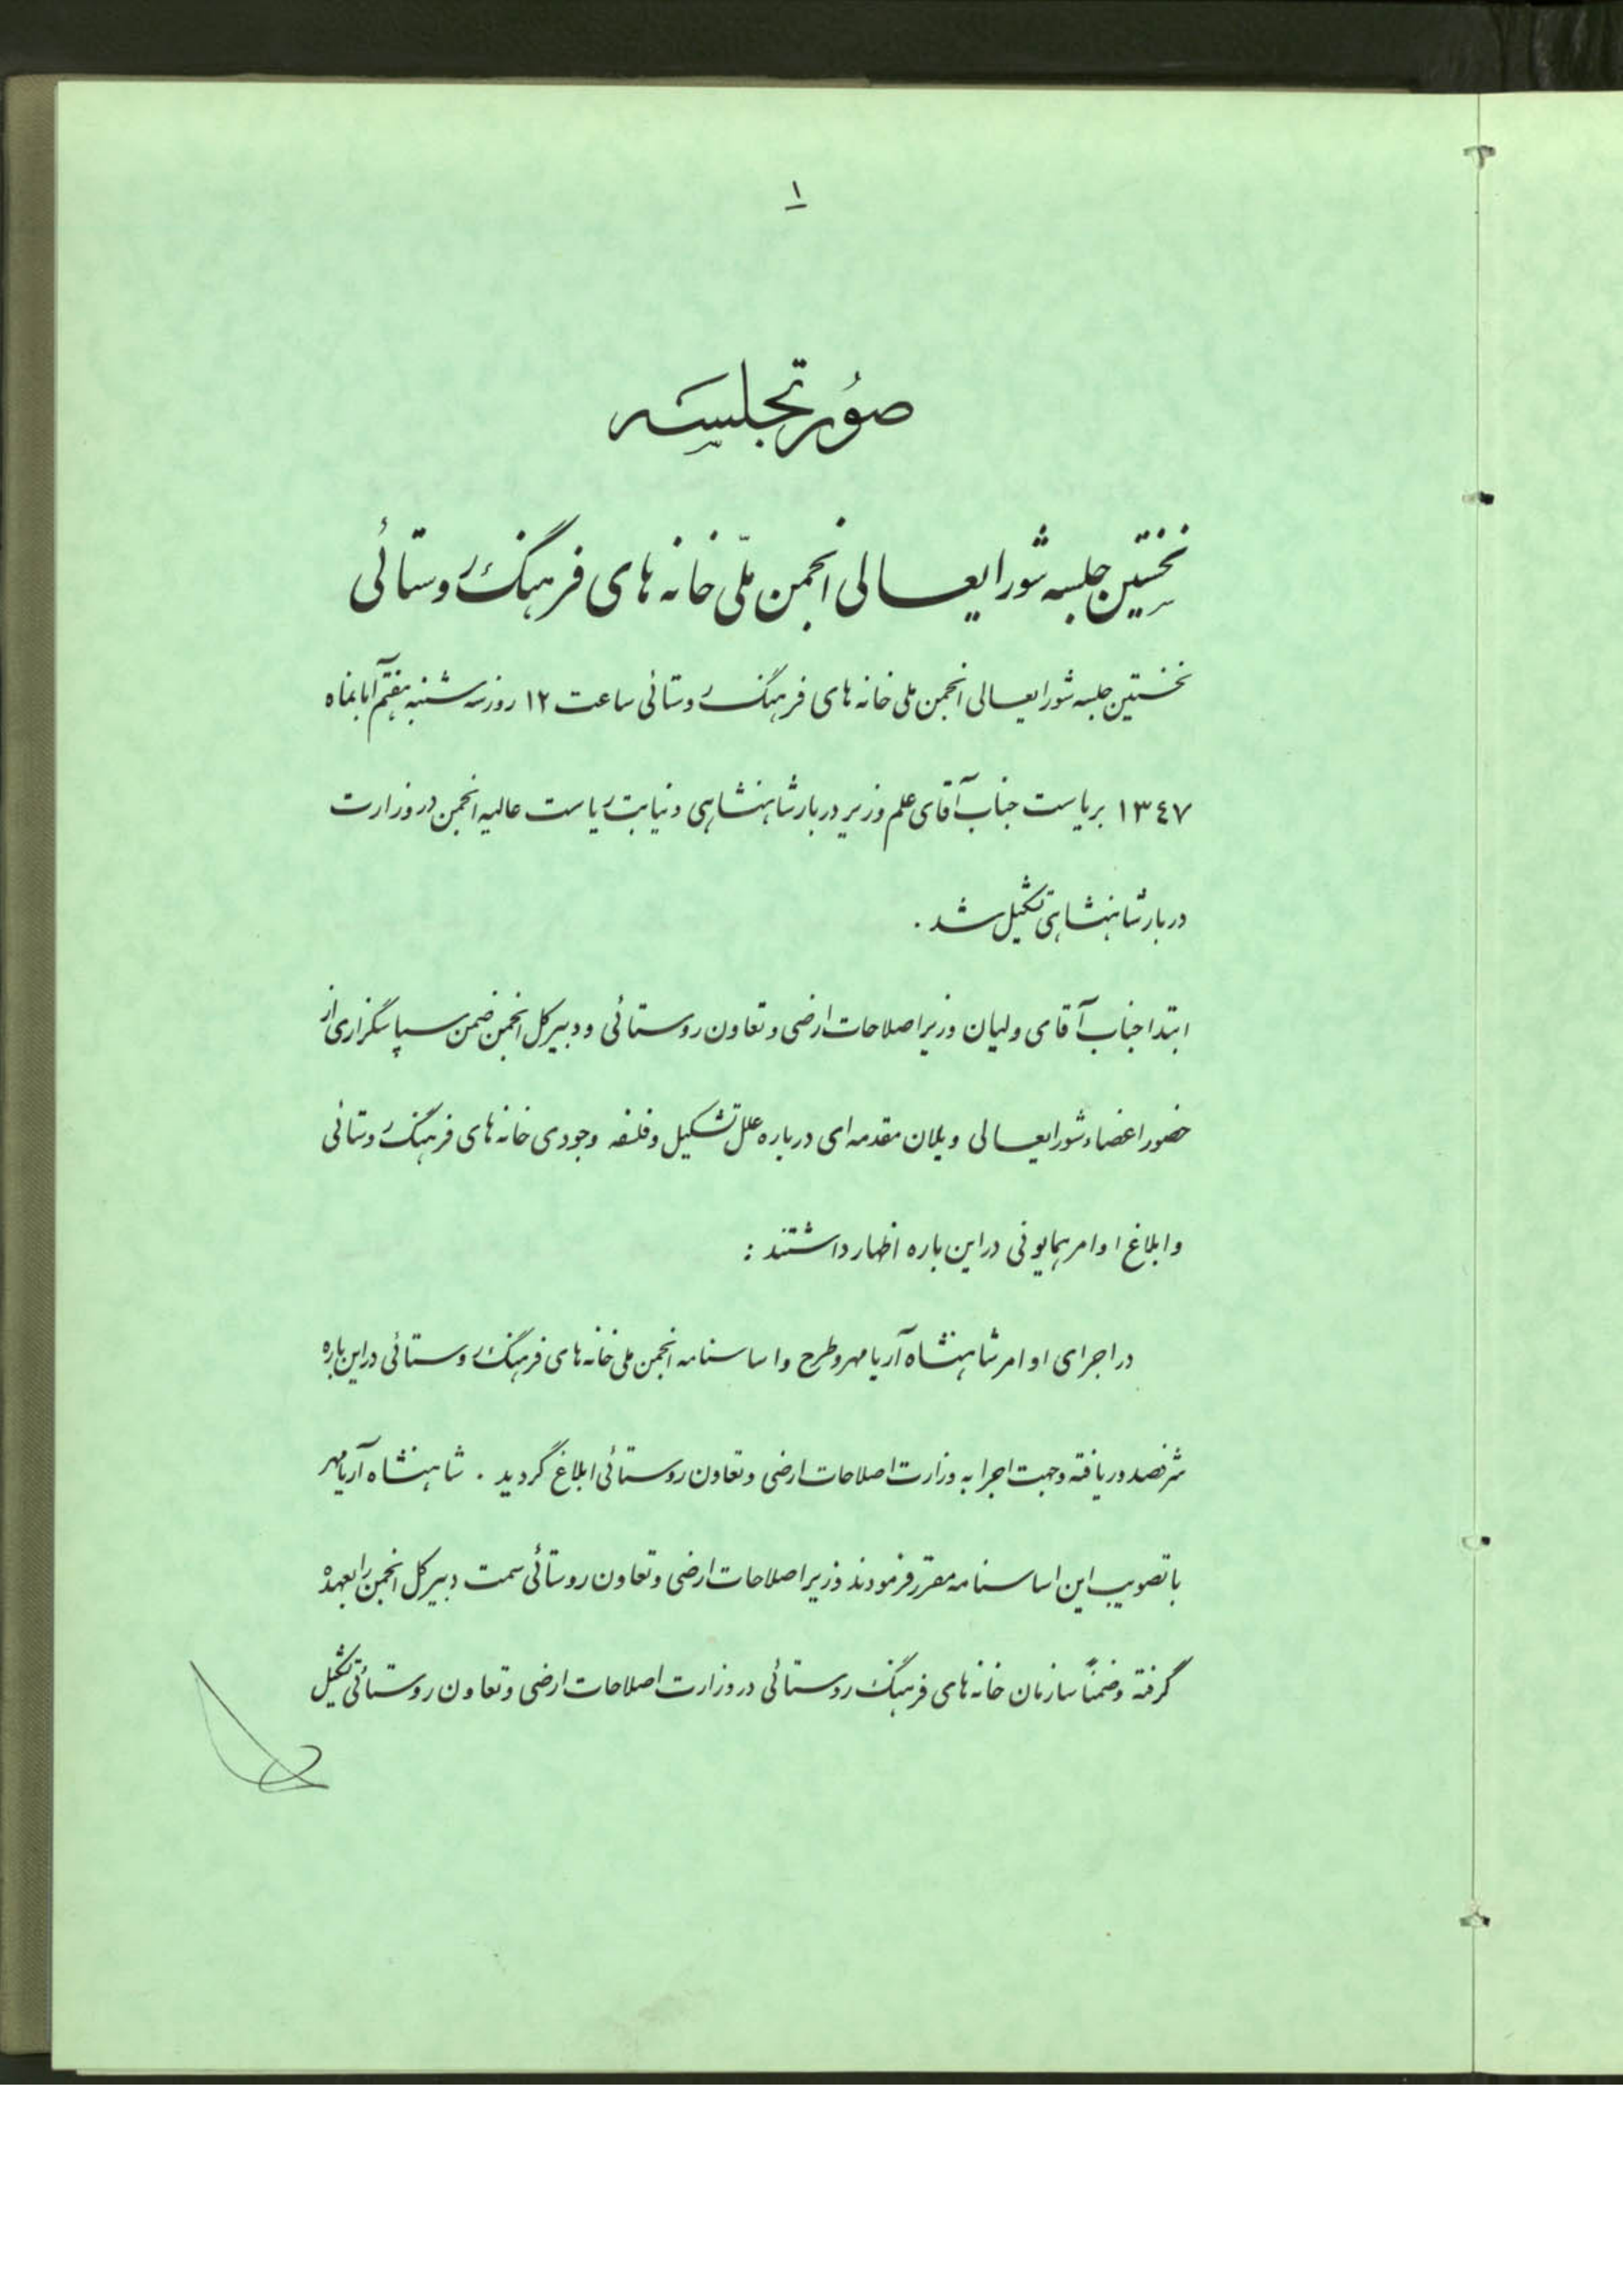 ۱
صورتجلسه
نخستین جلسه شورایعالی انجمن ملّی خانه های فرهنگ روستائی
نخستین جلسه شورایعالی انجمن ملی خانه های فرهنگ روستائی ساعت ۱۲ روز سه شنبه هفتم آبانماه
۱۳٤۷ بریاست جناب آقای علم وزیر دربار شاهنشاهی و نیابت ریاست عالیه انجمن در وزارت
دربار شاهنشاهی تشکیل شد .
ابتدا جناب آقای ولیان وزیر اصلاحات ارضی و تعاون روستائی و دبیرکل انجمن ضمن سپاسگزاری از
حضور اعضاء شورایعالی و بیان مقدمه ای درباره علل تشکیل و فلسفه وجودی خانه های فرهنگ روستائی
و ابلاغ اوامر همایونی در این باره اظهار داشتند :
در اجرای اوامر شاهنشاه آریامهر و طرح و اساسنامه انجمن ملی خانه های فرهنگ روستائی در این باره
شرفصدور یافته و جهت اجرا به وزارت اصلاحات ارضی و تعاون روستائی ابلاغ گردید . شاهنشاه آریامهر
با تصویب این اساسنامه مقرر فرمودند وزیر اصلاحات ارضی و تعاون روستائی سمت دبیرکل انجمن را بعهده
گرفته و ضمناً سازمان خانه های فرهنگ روستائی در وزارت اصلاحات ارضی و تعاون روستائی تشکیل